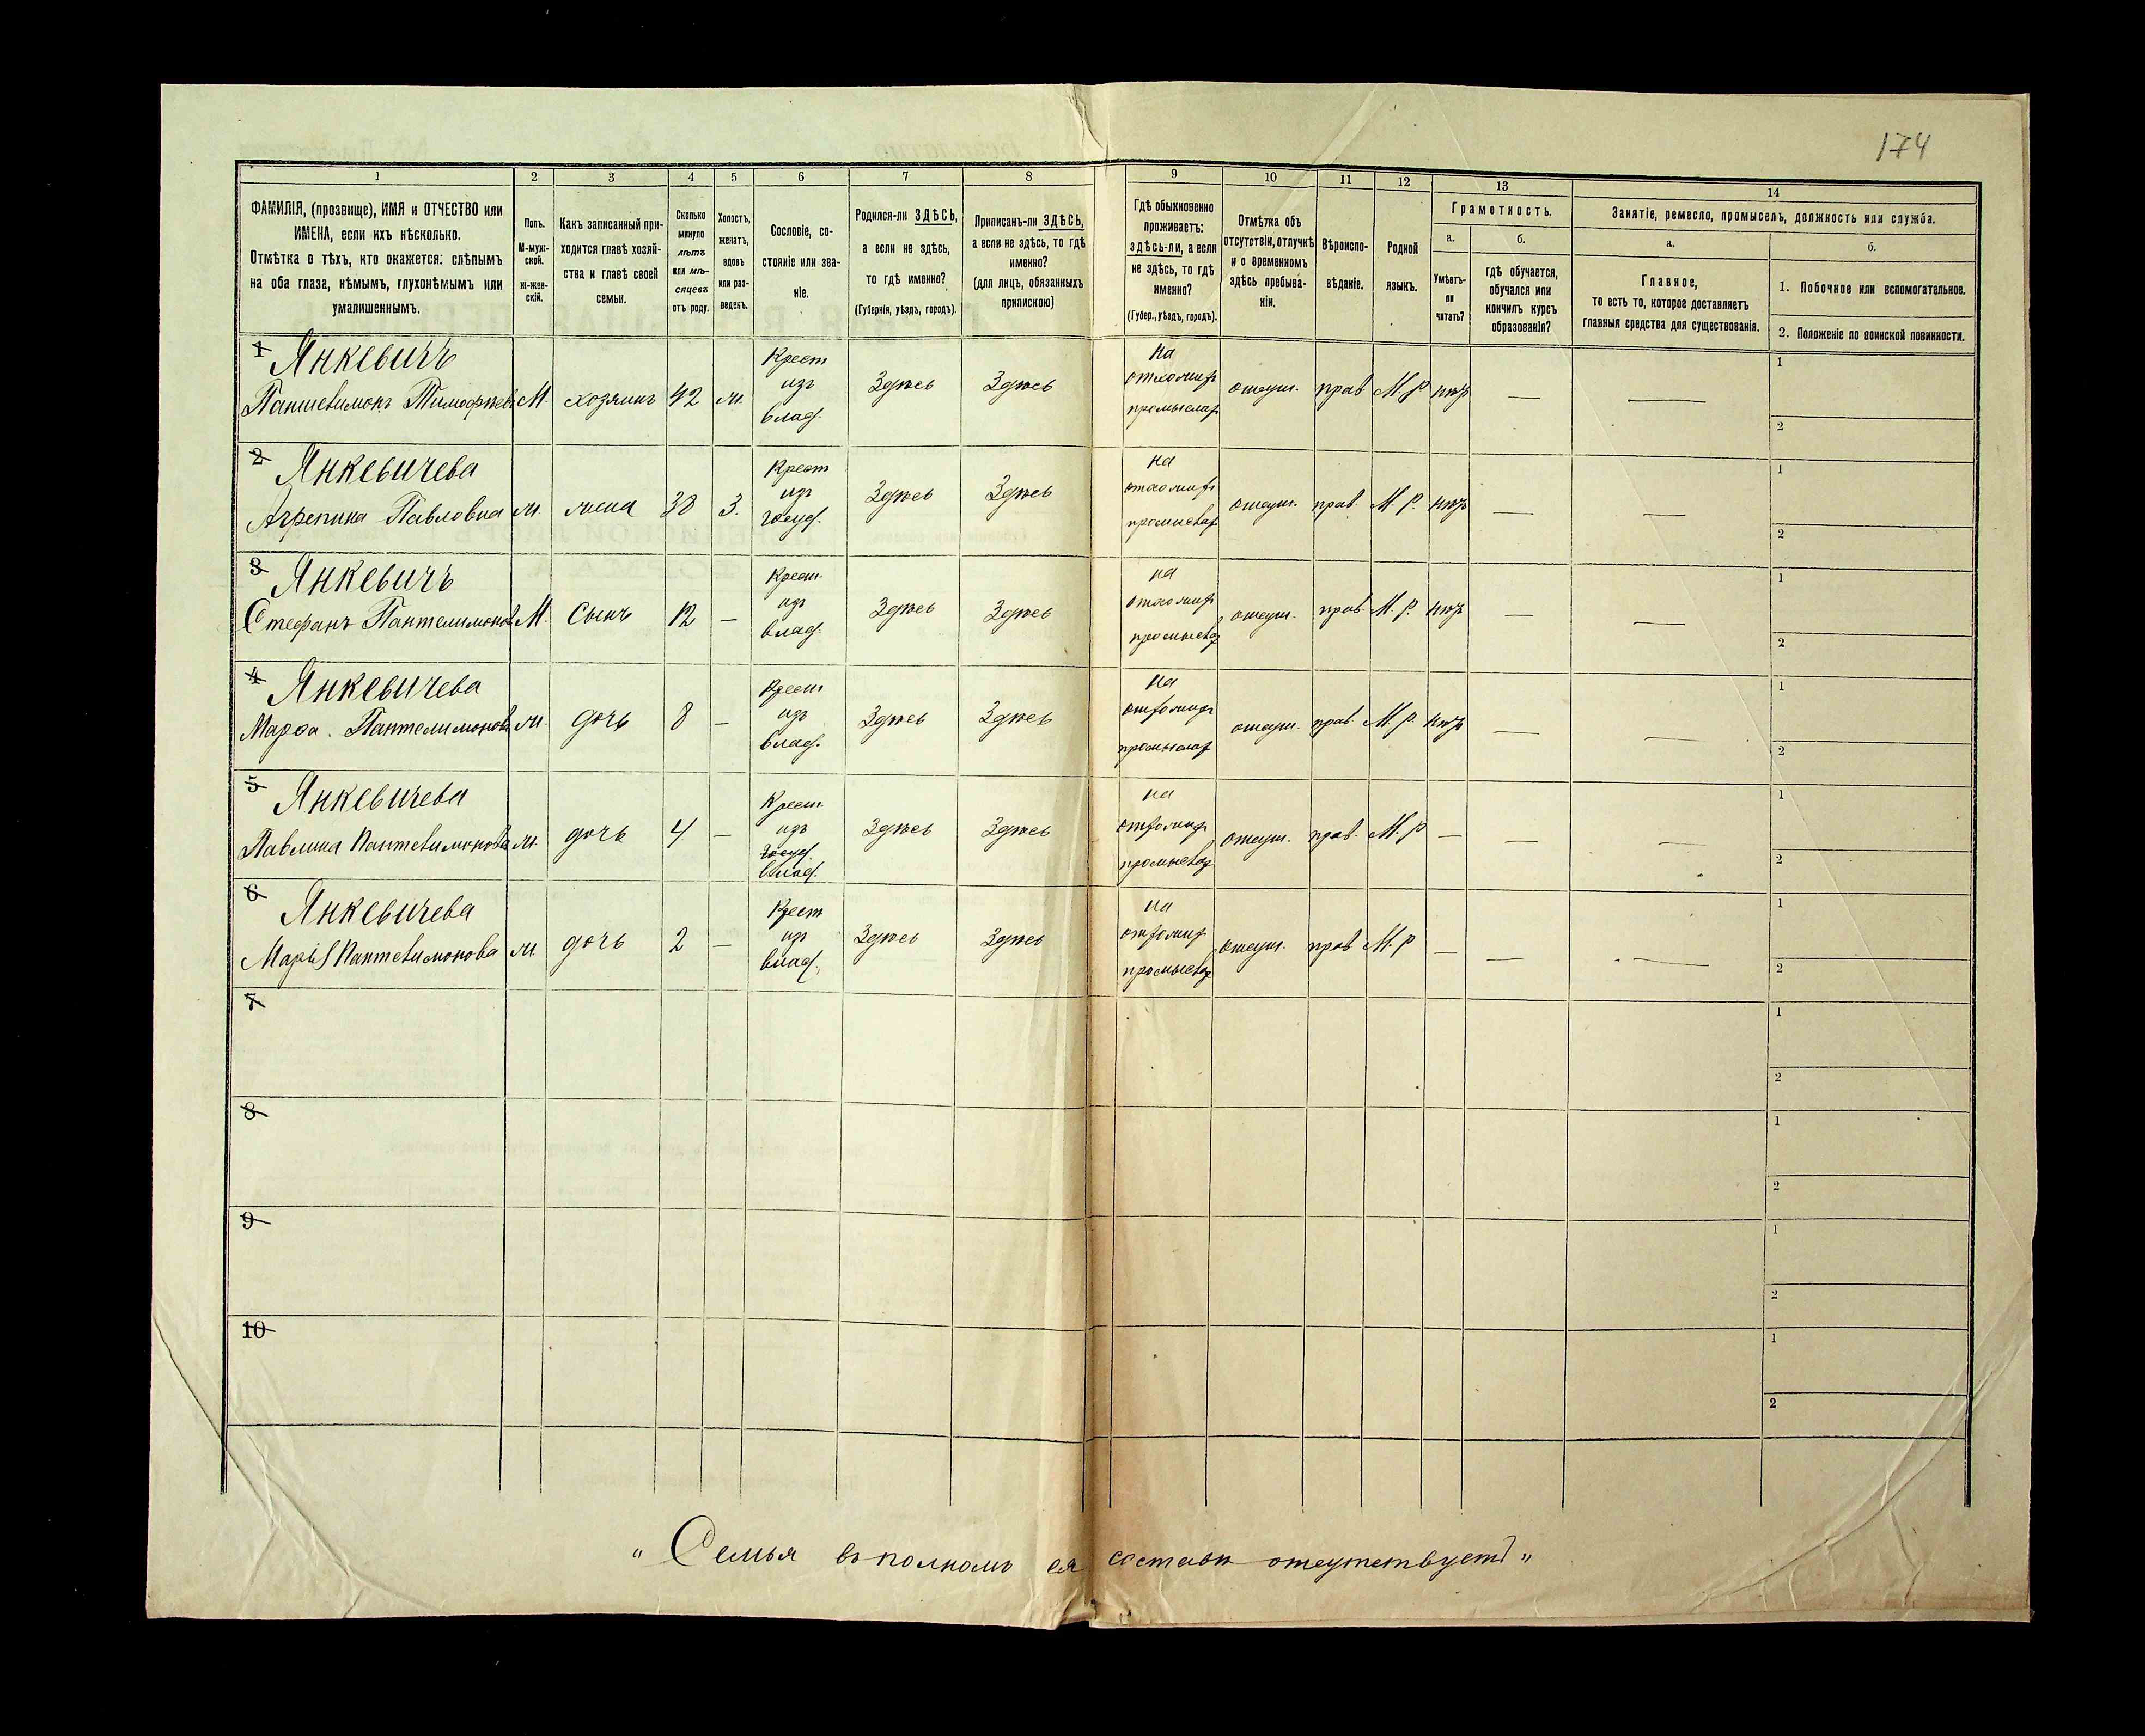 174
1
2
3
4
5
6
7
8
9
10
11
12
13
14
ФАМИЛІЯ, (прозвище), ИМЯ и ОТЧЕСТВО или
ИМЕНА, если ихъ нѣсколько.
Отмѣтка о тѣхъ, кто окажется: слѣпымъ
на оба глаза, нѣмымъ, глухонѣмымъ или
умалишеннымъ.
Полъ.
М-муж-
ской.
Ж-жен-
скій.
Какъ записанный при-
ходится главѣ хозяй-
ства и главѣ своей
семьи.
Сколько
минуло
лѣтъ
или мѣ-
сяцевъ
отъ роду.
Холостъ,
женатъ,
вдовъ
или раз-
веденъ.
Сословіе, со-
стояніе или зва-
ніе.
Родился-ли ЗДѢСЬ,
а если не здѣсь,
то гдѣ именно?
(Губернія, уѣздъ, городъ).
Приписанъ-ли ЗДѢСЬ,
а если не здѣсь, то гдѣ
именно?
(для лицъ, обязанныхъ
припискою)
Гдѣ обыкновенно
проживаетъ:
здѣсь-ли, а если
не здѣсь, то гдѣ
именно?
(Губер., уѣздъ, городъ).
Отмѣтка объ
отсутствіи, отлучкѣ
и о временномъ
здѣсь пребыва-
ніи.
Вѣроиспо-
вѣданіе.
Родной
языкъ.
Грамотность.
а.
Умѣетъ-
ли
читать?
б.
гдѣ обучается,
обучался или
кончилъ курсъ
образованія?
Занятіе, ремесло, промыселъ, должность или служба.
а.
Главное,
то есть то, которое доставляетъ
главныя средства для существованія.
б.
1. Побочное или вспомогательное.
2. Положеніе по воинской повинности.
1 Янкевичъ
Пантелимонъ Тимофеев М. хозяинъ 42 ж. Крест изъ влад. Здѣсь Здѣсь на отхожих промыслах отсут. прав. М.Р. нѣт — — 1 2
2 Янкевичева
Агрепина Павловна ж. жена 38 З. Крест из госуд. Здѣсь Здѣсь на отхожих промыслах отсут. прав. М.Р. нѣт — — 1 2
3 Янкевичъ
Стефанъ Пантелимонов М. Сынъ 12 — Крест. из влад. Здѣсь Здѣсь на отхожих промыслах отсут. прав. М.Р. нѣт — — 1 2
4 Янкевичева
Марфа Пантелимонова ж. дочь 8 — Крест из влад. Здѣсь Здѣсь на отхожих промыслах отсут. прав. М.Р. нѣт — — 1 2
5 Янкевичева
Павлина Пантелимонова ж. дочь 4 — Крест. из госуд. влад. Здѣсь Здѣсь на отхожих промыслах отсут. прав. М.Р — — — 1 2
6 Янкевичева
Марія Пантелимонова ж. дочь 2 — Крест из влад. Здѣсь Здѣсь на отхожих промыслах отсут. прав М.Р — — — 1 2
7 1 2
8 1 2
9 1 2
10 1 2
„Семья въ полномъ ея составѣ отсутствуетъ"